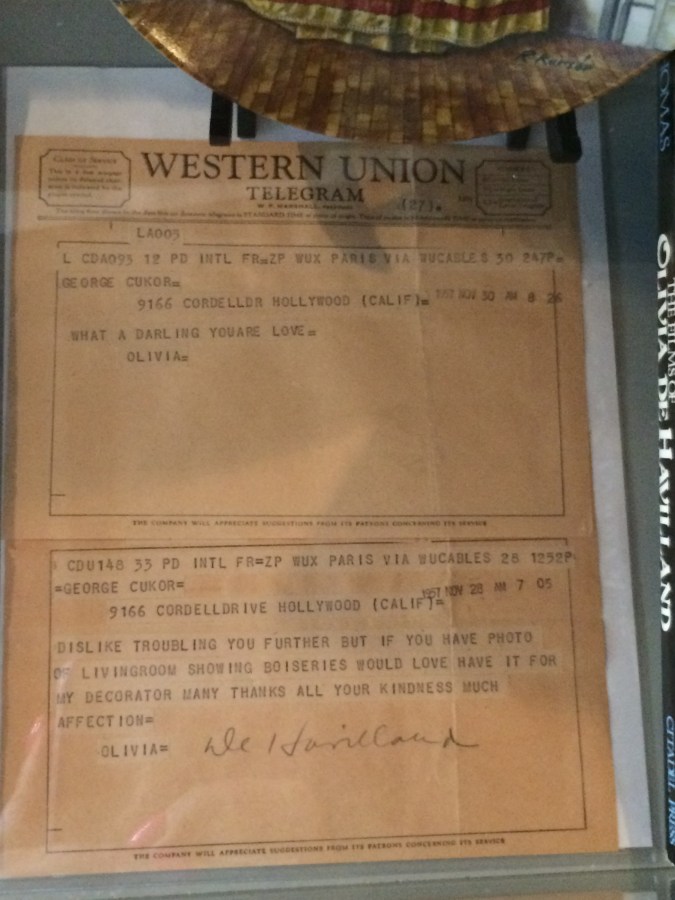 CLASS OF SERVICE
WESTERN UNION
TELEGRAM
W. P. MARSHALL, PRESIDENT
(27).
LA005
L CDA093 12 PD INTL FR=ZP WUX PARIS VIA WUCABLES 30 247P=
GEORGE CUKOR=
9166 CORDELLDR HOLLYWOOD (CALIF)= 1957 NOV 30 AM 8 26
WHAT A DARLING YOUARE LOVE=
OLIVIA=
THE COMPANY WILL APPRECIATE SUGGESTIONS FROM ITS PATRONS CONCERNING ITS SERVICE
CDU148 33 PD INTL FR=ZP WUX PARIS VIA WUCABLES 28 1252P
=GEORGE CUKOR=
9166 CORDELLDRIVE HOLLYWOOD (CALIF)= 1957 NOV 28 AM 7 05
DISLIKE TROUBLING YOU FURTHER BUT IF YOU HAVE PHOTO
OF LIVINGROOM SHOWING BOISERIES WOULD LOVE HAVE IT FOR
MY DECORATOR MANY THANKS ALL YOUR KINDNESS MUCH
AFFECTION=
OLIVIA= De Havilland
THE COMPANY WILL APPRECIATE SUGGESTIONS FROM ITS PATRONS CONCERNING ITS SERVICE
THE FILMS OF
OLIVIA DE HAVILLAND
CITADEL PRESS